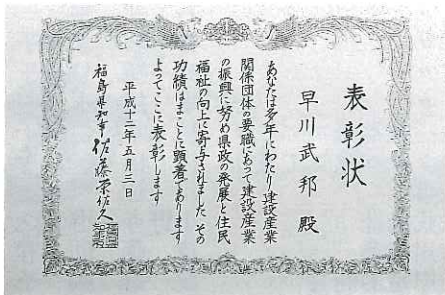 表彰状
早川武邦 殿
あなたは多年にわたり建設産業
関係団体の要職にあって建設産業
の振興に努め県政の発展と住民
福祉の向上に寄与されました その
功績はまことに顕著であります
よってここに表彰します
平成十二年五月三日
福島県知事 佐藤栄佐久